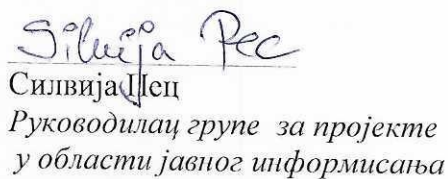 Silvija Pec
Силвија Пец
Руководилац групе за пројекте
у области јавног информисања